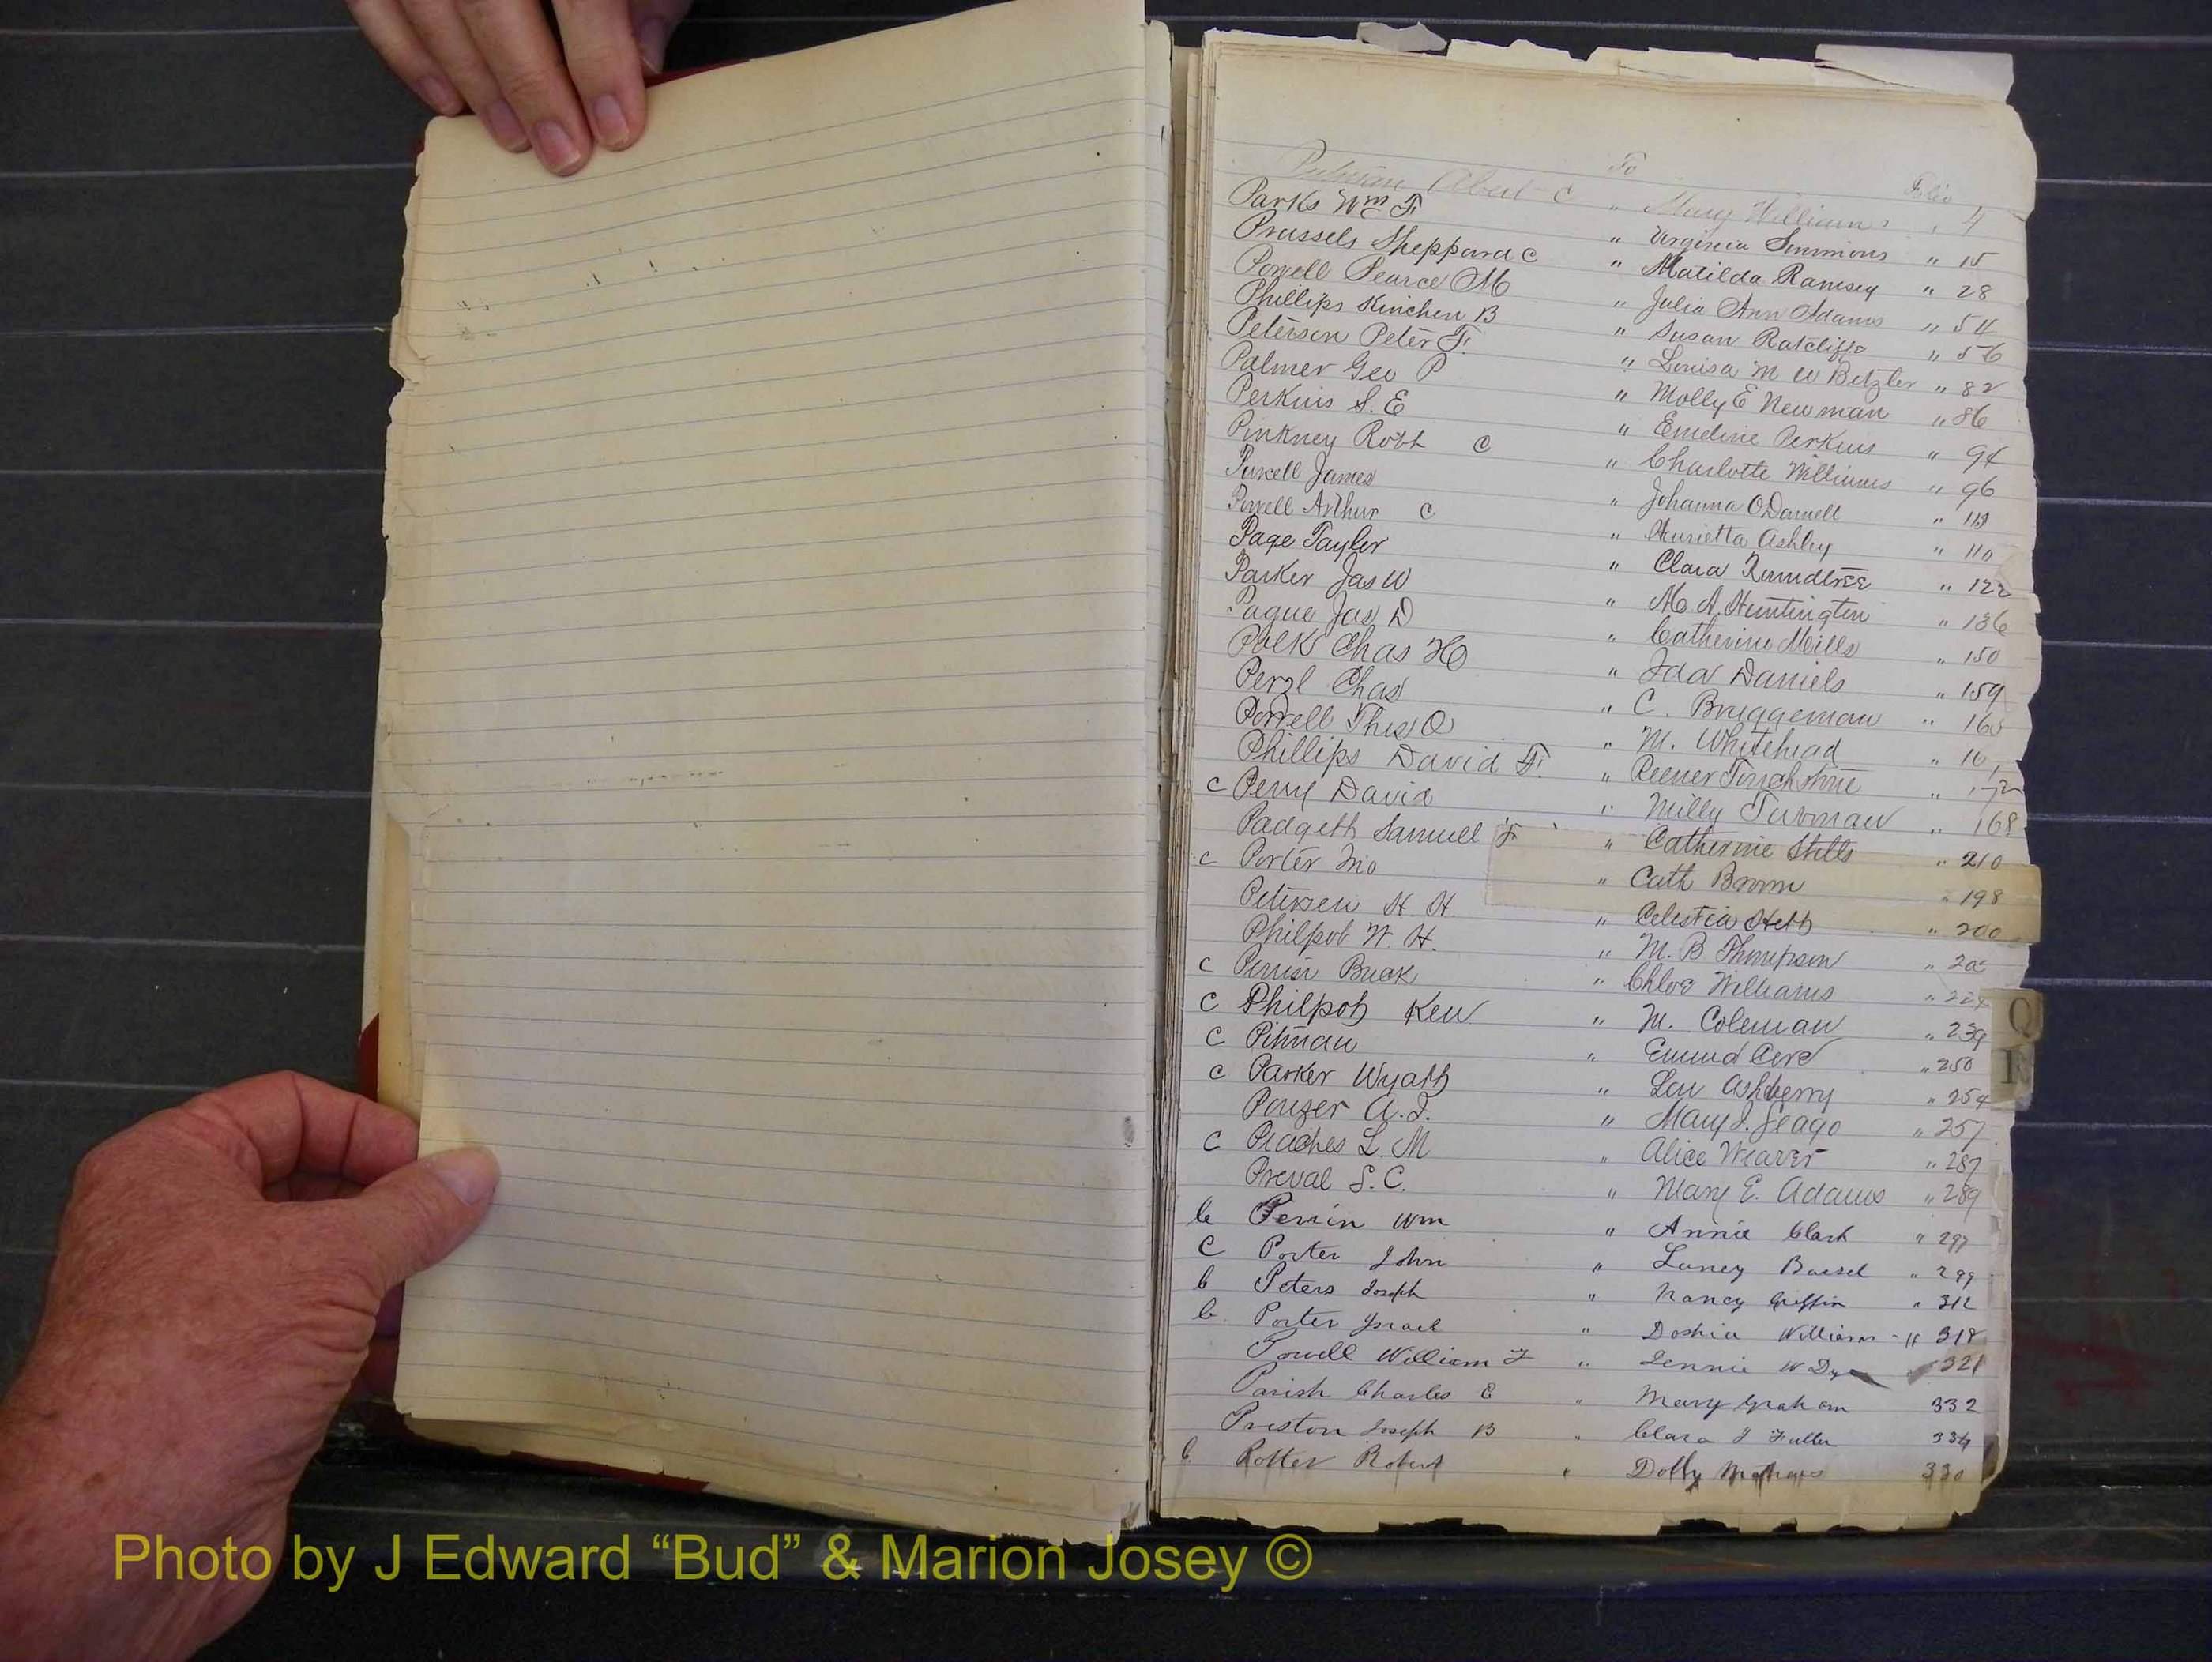 To Folio
Albert C " Mary Williams " 4
Parks Wm F " Virginia Simmons " 15
Prussels Sheppard C " Matilda Ramsey " 28
Powell Pearce M " Julia Ann Adams " 54
Phillips Kinchen B " Susan Ratcliffe " 56
Peterson Peter F. " Louisa M W Betzler " 82
Palmer Geo P " Molly E Newman " 86
Perkins S. E " Emeline Perkins " 94
Pinkney Robt C " Charlotte Williams " 96
Purcell James " Johanna O'Donnell "
Powell Arthur C " Henrietta Ashley " 110
Page Taylor " Clara Roundtree " 122
Parker Jas W " M A. Huntington " 136
Pague Jas D " Catherine Mills " 150
Polk Chas H " Ida Daniels " 159
Perzl Chas " C. Bruggeman "
Powell Thos O " M. Whitehead "
Phillips David F. " Touchstone " 172
c Perry David " Milly Tubman " 168
Padgett Samuel F " Catherine Stills " 210
c Porter Jno " Cath Brown " 198
Petersen H. H. " Celestia Stett " 200
Philpot W. H. " M. B Thompson "
c Perrin Buck " Chloe Williams "
c Philpot Ken " M. Coleman " 239
c Pitman " Emma " 250
c Parker Wyatt " Lou Ashberry " 254
Pouzer A. J. " Mary J. Seago " 257
c Peaches L. M " Alice Weaver " 287
Preval S. C. " Mary E. Adams " 289
C Perrin Wm " Annie Clark " 297
C Porter John " Laney " 299
C Peters Joseph " Nancy Griffin " 312
C Porter Israel " Doshia Williams " 318
Powell William F " Jennie W " 321
Parish Charles E " Mary Graham 332
Preston Joseph B " Clara J Fuller 334
C Potter Robert " Dolly 330
Q
R
Photo by J Edward “Bud” & Marion Josey ©